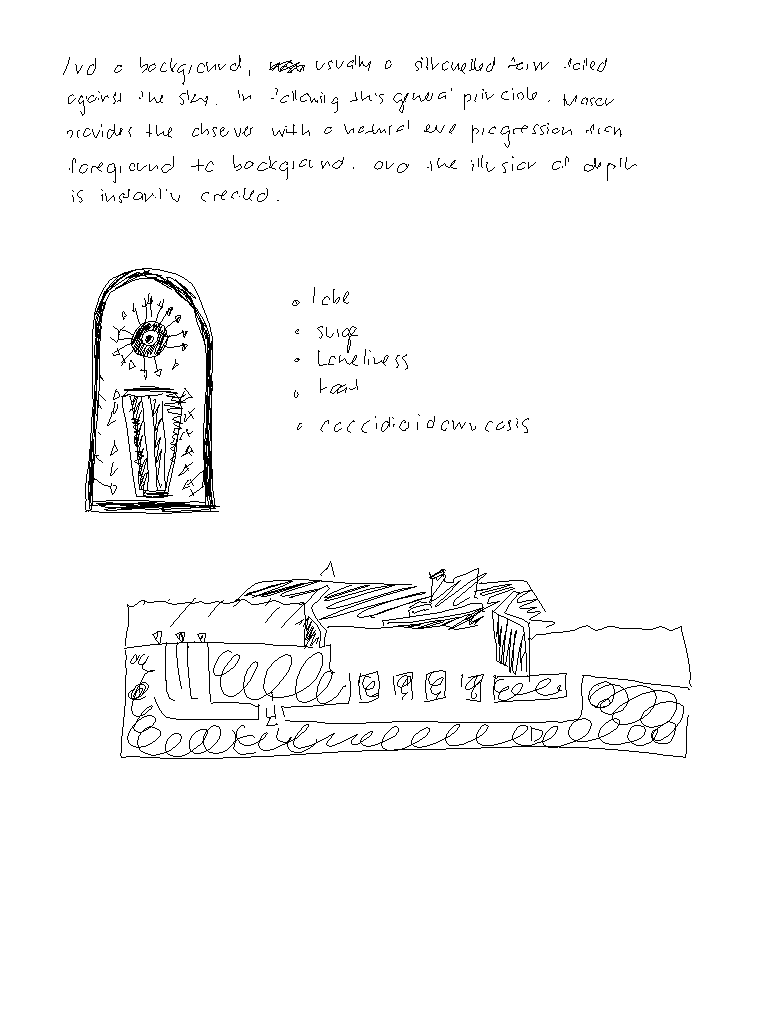 and a background, usually a silhouetted form
against the sky. In following this general principle. Mason
provides the observer with a natural eye progression from
foreground to background. and the illusion of depth
is instantly created.
surge
Loneliness
coccidioidomycosis